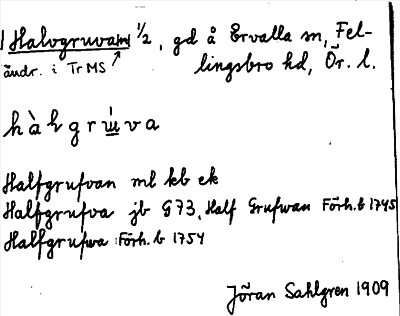 Halvgruvan 1/2, gd å Ervalla sn, Fel-
ändr. i TrMS lingsbro hd, Ör. l.
hàlvgrúva
Halfgrufvan ml kb ek
Halfgrufva jb G73. Half Grufwan Förh.b 1745
Halfgrufwa Förh. b 1754
Jöran Sahlgren 1909